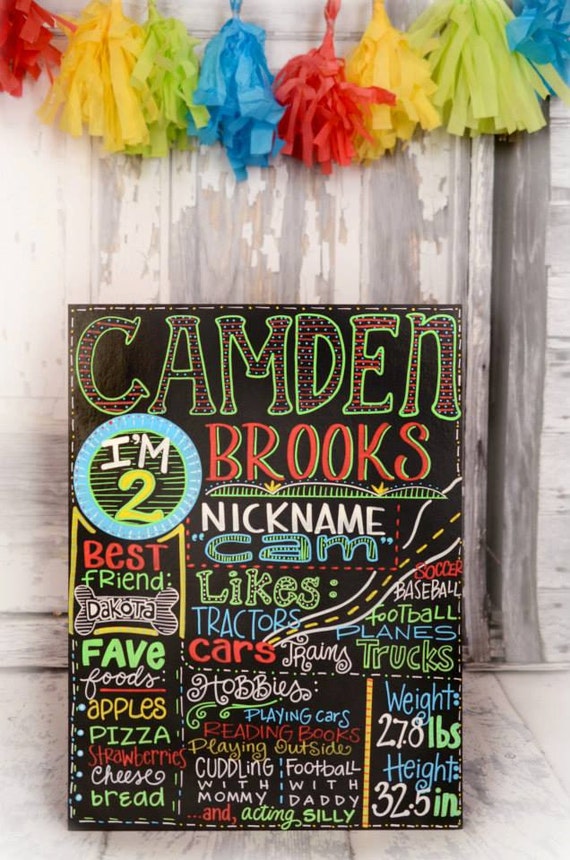 CAMDEN
BROOKS
I'M
2
NICKNAME
"cam"
BEST
friend:
Dakota
FAVE
foods:
APPLES
PIZZA
Strawberries
cheese
bread
Likes:
SOCCER
BASEBALL
TRACTORS
fOOTBALL
PLANES
cars
Trains
Trucks
HoBBies:
PLAYING CARS
READING BOOKS
Playing Outside
CUDDLING
WITH
MOMMY
FOOTBALL
WITH
DADDY
...and, acting SILLY
Weight:
27.8 lbs
Height:
32.5 in